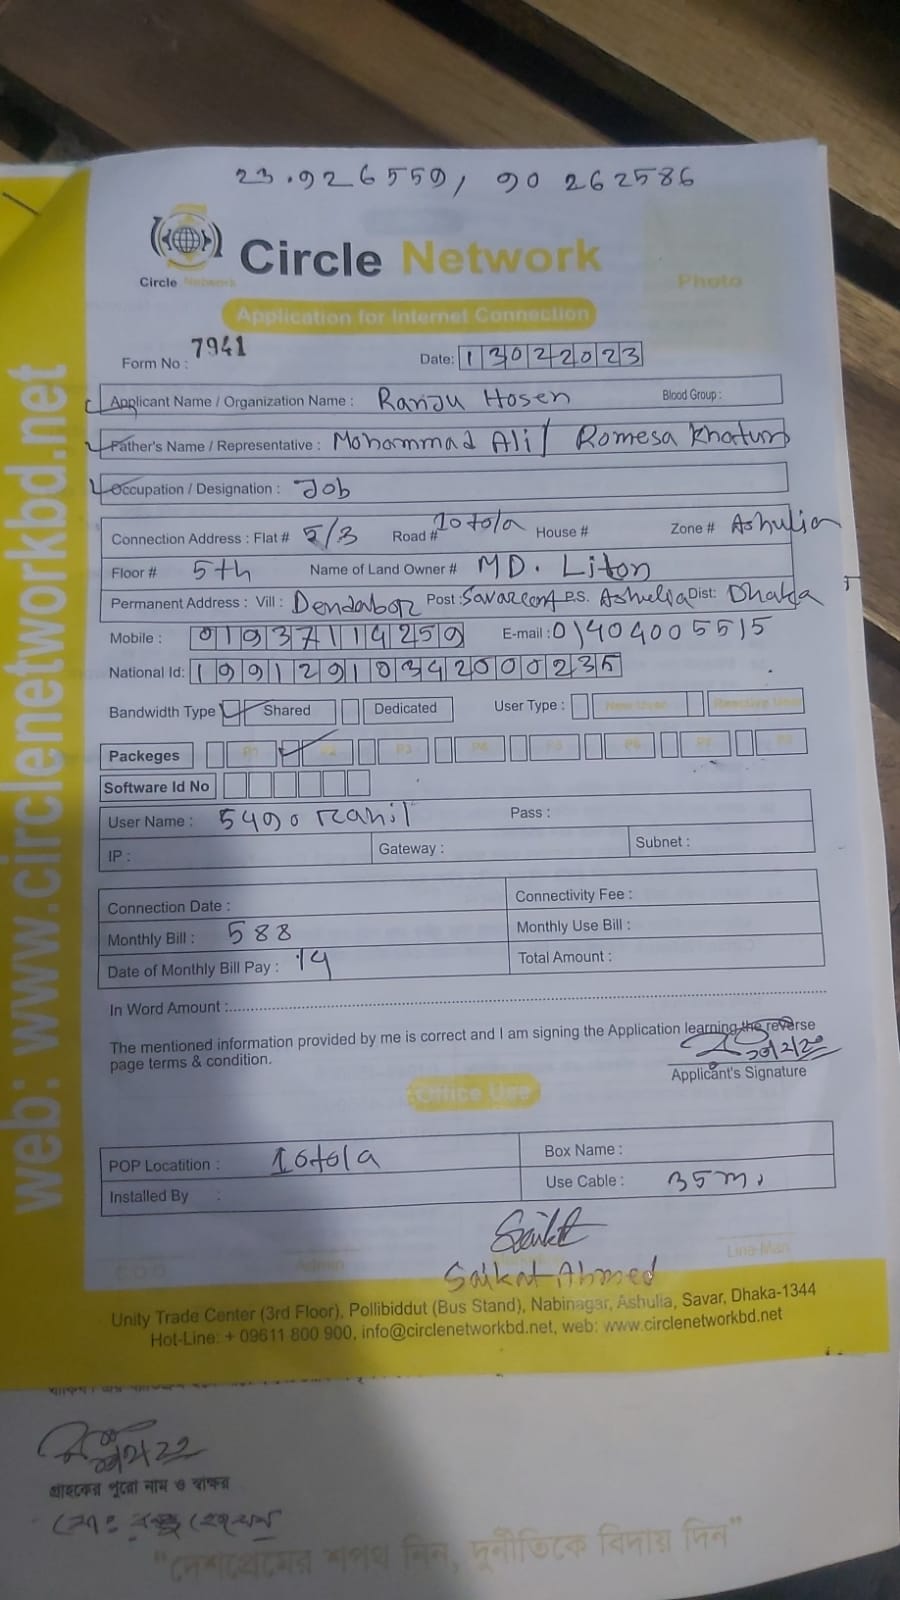 23.926559, 90 262586
Circle Network
Circle Network
Photo
Application for Internet Connection
Form No : 7941 Date: 13022023
Applicant Name / Organization Name : Ranju Hosen Blood Group :
Father's Name / Representative : Mohammad Ali / Romesa Khatun
Occupation / Designation : Job
Connection Address : Flat # 5/3 Road # 10tola House # Zone # Ashulia
Floor # 5th Name of Land Owner # MD. Liton
Permanent Address : Vill : Dendabor Post : Savarcent P.S. Ashulia Dist: Dhaka
Mobile : 01937114259 E-mail : 01404005515
National Id: 19912910342000235
Bandwidth Type Shared Dedicated User Type : New User Reactive User
Packeges P1 P2 P3 P4 P5 P6 P7 P8
Software Id No
User Name : 5490 Pass :
IP : Gateway : Subnet :
Connection Date : Connectivity Fee :
Monthly Bill : 588 Monthly Use Bill :
Date of Monthly Bill Pay : 14 Total Amount :
In Word Amount :
The mentioned information provided by me is correct and I am signing the Application learning the reverse
page terms & condition.
Applicant's Signature
Office Use
POP Locatition : 10tola Box Name :
Installed By : Use Cable : 35m.
Saikat
C.O.O Admin Line-Man
Saikat Ahmed
Unity Trade Center (3rd Floor), Pollibiddut (Bus Stand), Nabinagar, Ashulia, Savar, Dhaka-1344
Hot-Line: + 09611 800 900, info@circlenetworkbd.net, web: www.circlenetworkbd.net
web: www.circlenetworkbd.net
গ্রাহকের পুরো নাম ও স্বাক্ষর
মোঃ রঞ্জু হোসেন
"দেশপ্রেমের শপথ নিন, দুর্নীতিকে বিদায় দিন"